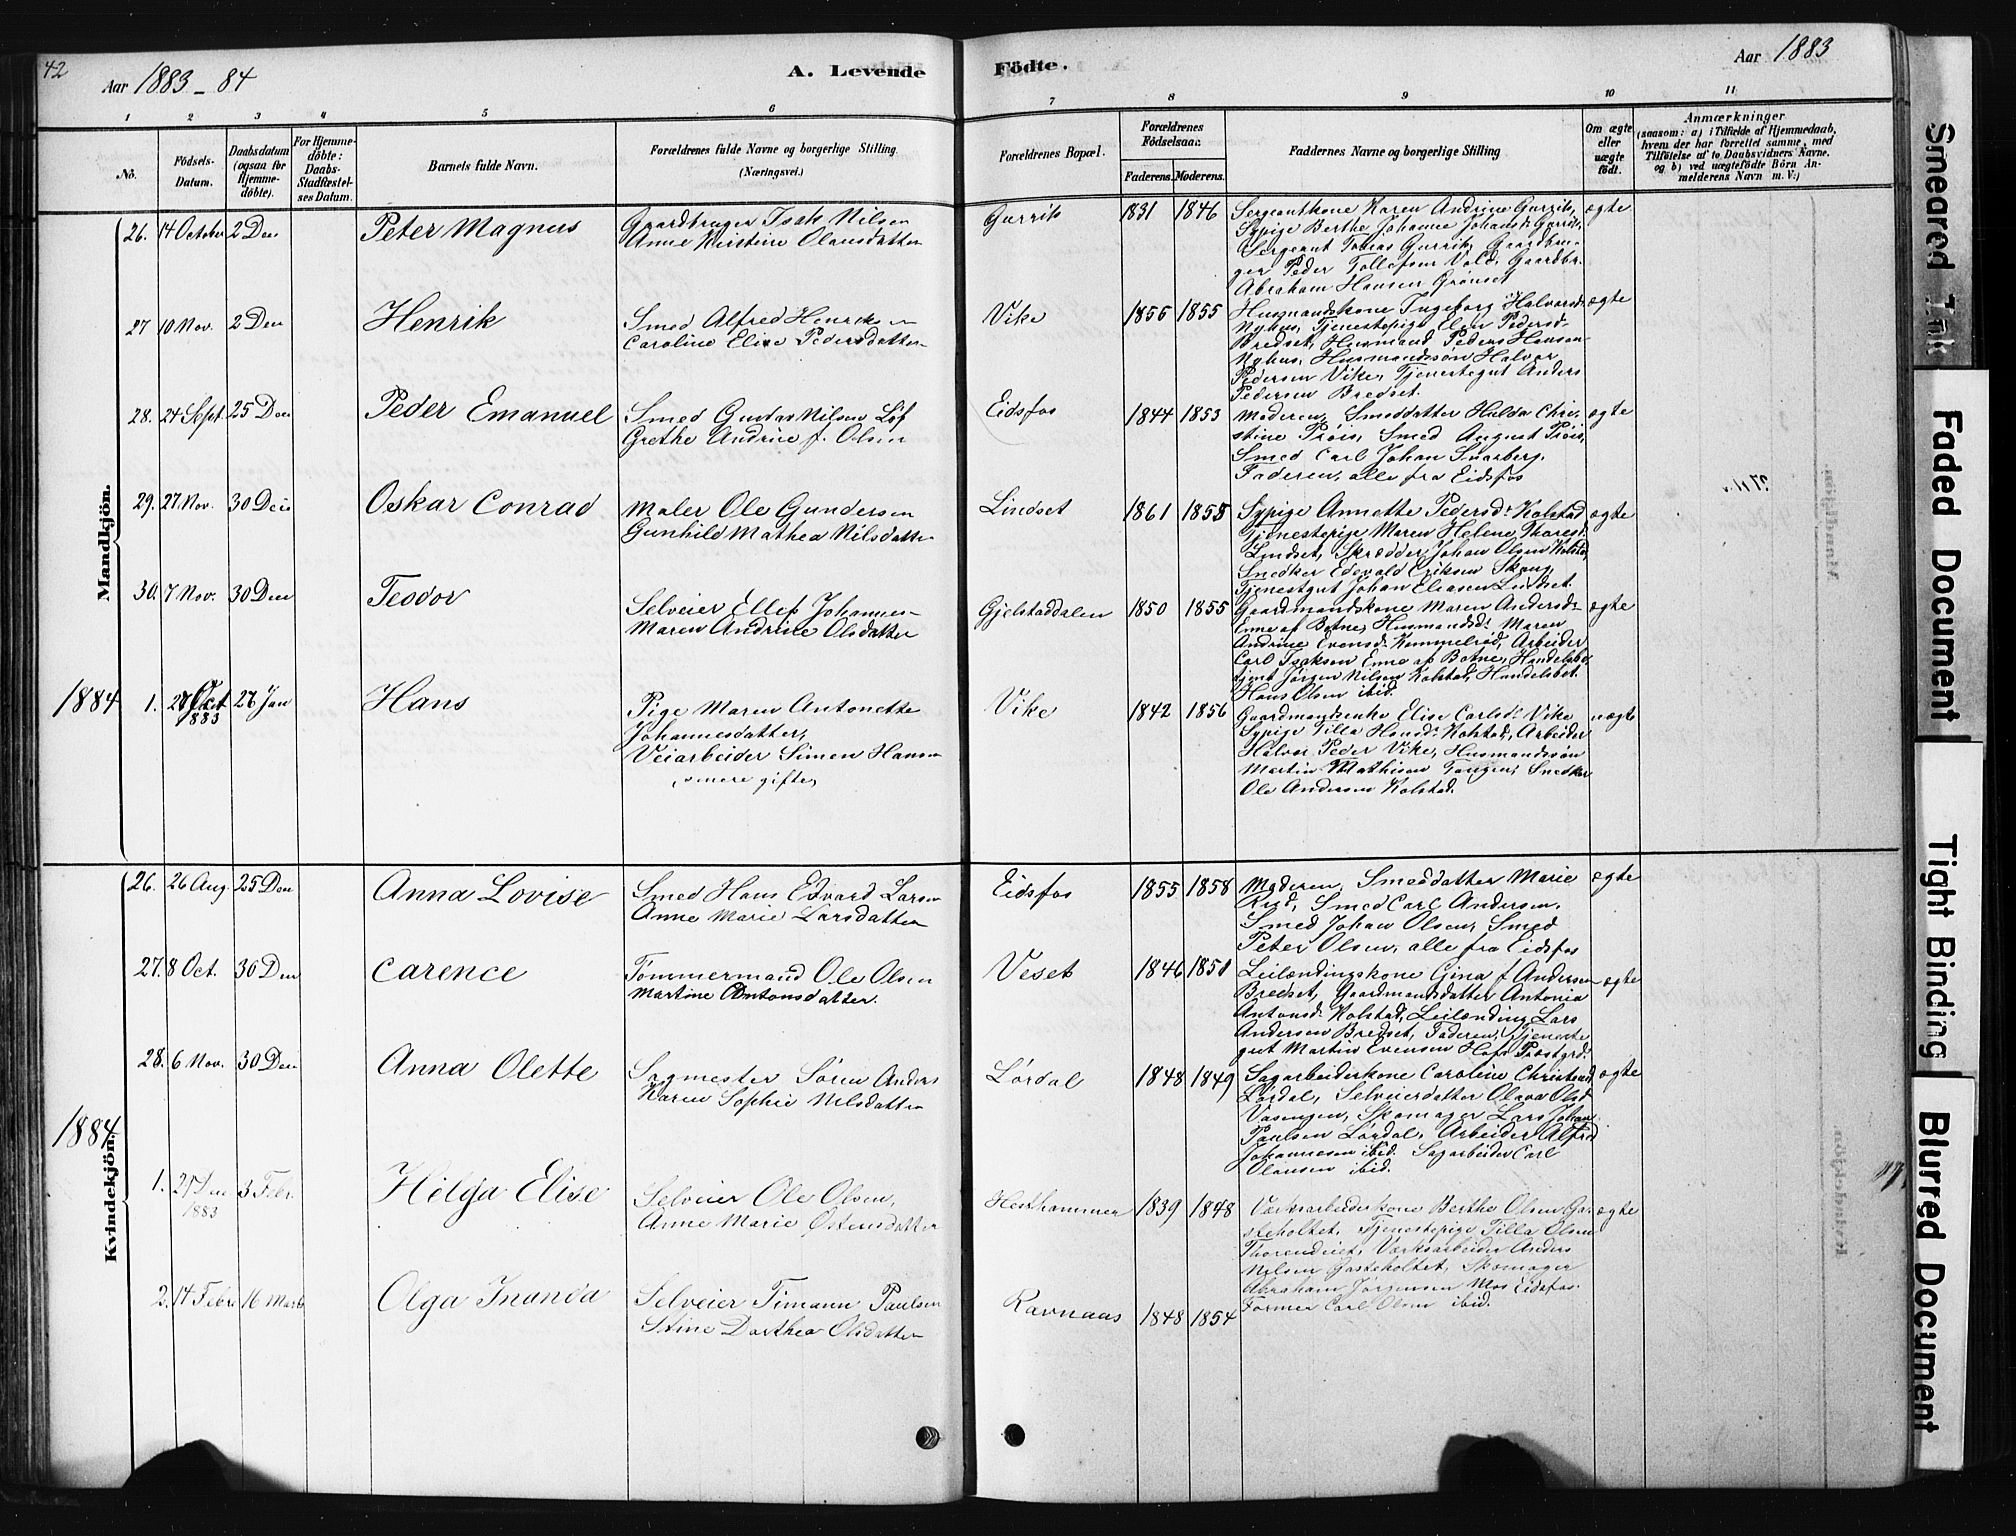 42
Aar 1883-84
A. Levende
Födte.
Aar 1883
1 2 3 4 5 6 7 8 9 10 11
No.
Födsels-
Datum.
Daabsdatum
(ogsaa for
Hjemme-
döbte).
For Hjemme-
döbte:
Daabs-
Stadfæstel-
ses Datum.
Barnets fulde Navn.
Forældrenes fulde Navne og borgerlige Stilling
(Næringsvei.)
Forældrenes Bopæl.
Forældrenes
Födselsaar.
Faderens. Moderens.
Faddernes Navne og borgerlige Stilling
Om ægte
eller
uægte
födt.
Anmærkninger
(saasom: a) i Tilfælde af Hjemmedaab,
hvem der har forrettet samme, med
Tilföielse af to Daabsvidners Navne,
og b) ved uægtefödte Börn An-
melderens Navn m. V.)
Mandkjön.
26. 14 October 2 Dec Peter Magnus
Gaardbruger Isak Nilsen
Anne Kirstine Olausdatter
Gurrik 1831 1846
Sergeantkone Karen Andrine Gurrik,
Sypige Berthe Johanne Johansd. Gurrik,
Sergeant Tobias Gurrik, Gaardbru-
ger Peder Tollefsen Vold, Gaardbr.
Abraham Hansen Grönset
ægte
27 10 Nov. 2 Dec Henrik
Smed Alfred Henriksen
Caroline Elise Pedersdatter
Vike 1856 1855
Husmandskone Ingeborg Halvorsd.
Nyhus, Tjenestepige Elen Pedersd.
Bredset, Husmand Peder Hansen
Nyhus, Husmandssøn Halvor
Pedersen Vike, Tjenestegut Anders
Pedersen Bredset.
ægte
28. 24 Sept. 25 Dec Peder Emanuel
Smed Gustav Nilsen Löf
Grethe Andrine f. Olsen
Eidsfos 1844 1853
Moderen, Smeddatter Hulda Chri-
stine Prøis, Smed August Prøis,
Smed Carl Johan Snarberg,
Faderen, alle fra Eidsfos
ægte
29. 27 Nov. 30 Dec Oskar Conrad
Maler Ole Gundersen
Gunhild Mathea Nilsdatter
Lindset 1861 1858
Sypige Annette Pedersd. Kolstad
Tjenestepige Maren Helene Thoresd.
Lindset, Skrædder Johan Olsen Kolstad
Snedker Edevald Eriksen Skaug,
Tjenestgut Johan Eliasen Lindset.
ægte
30. 7 Nov. 30 Dec Teodor
Selveier Ellef Johannes
Maren Andrine Olsdatter
Gjelstaddalen 1850 1855
Gaardmandskone Maren Andersd.
Enne af Botne, Husmandsd. Maren
Andrine Evensd. Kommelrød, Arbeider
Carl Isaksen Enne af Botne, Handelsbe-
tjent Jörgen Nilsen Kolstad, Handelsbet.
Hans Olsen ibid.
ægte
1884 1. 28 Oct 1883 27 Jan Hans
Pige Maren Antonette
Johannesdatter,
Veiarbeider Simen Hansen
senere gifte,
Vike 1842 1856
Gaardmandsenke Elise Carlsd. Vike
Sypige Tilla Hansd. Kolstad, Arbeider
Halvor Peder Vike, Husmandssøn
Martin Mathisen Tangen, Snedker
Ole Andersen Kolstad.
uægte
Kvindekjön.
26. 26 Aug. 25 Dec Anna Lovise
Smed Hans Edvard Larsen
Anne Marie Larsdatter
Eidsfos 1855 1858
Moderen, Smeddatter Marie
Rud, Smed Carl Andersen,
Smed Johan Olsen, Smed
Peter Olsen, alle fra Eidsfos
ægte
27. 8 Oct. 30 Dec Carence
Tømmermand Ole Olsen
Martine Antonsdatter.
Veset 1846 1851
Leilændingskone Gina f. Andersen
Bredset, Gaardmandsdatter Antonia
Antonsd. Kolstad, Leilænding Lars
Andersen Bredset, Faderen, Tjeneste
gut Martin Evensen Hofs Præstgrd.
ægte
28. 6 Nov. 30 Dec Anna Olette
Sagmester Sören Anders
Karen Sophie Nilsdatter
Lørdal 1848 1849
Sagarbeiderkone Caroline Christensd
Lørdal, Selveiersdatter Olava Olsd
Vasengen, Skomager Lars Johan
Paulsen Lørdal, Arbeider Alfred
Johannesen ibid. Sagarbeider Carl
Olausen ibid.
ægte
1884
1. 21 Dec 1883 3 Febr. Helga Elise
Selveier Ole Olsen,
Anne Marie Østensdatter
Hesthammer 1839 1848
Værksarbeiderkone Berthe Olsen Ga-
steholtet, Tjenestepige Tilla Olsen
Thorendeiet, Værksarbeider Anders
Nilsen Gasteholtet, Skomager
Abraham Jørgensen Moe Eidsfos.
Former Carl Olsen ibid.
ægte
2. 14 Febr 16 Marts Olga Inanda
Selveier Timann Paulsen
Stine Dorthea Olsdatter
Ravnaas 1848 1854
Smeared Ink
Faded Document
Tight Binding
Blurred Document